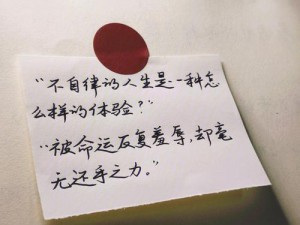 “不自律的人生是一种怎
么样的体验？”
“被命运反复羞辱，却毫
无还手之力。”